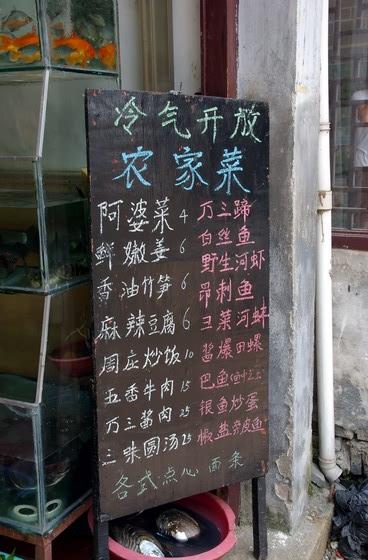 冷气开放
农家菜
阿婆菜 4 万三蹄
鲜嫩姜 6 白丝鱼
香油竹笋 6 野生河虾
麻辣豆腐 6 昂刺鱼
周庄炒饭 10 丑菜河蚌
五香牛肉 15 酱爆田螺
万三酱肉 25 巴鱼
三味圆汤 25 银鱼炒蛋
椒盐旁皮鱼
各式点心面条